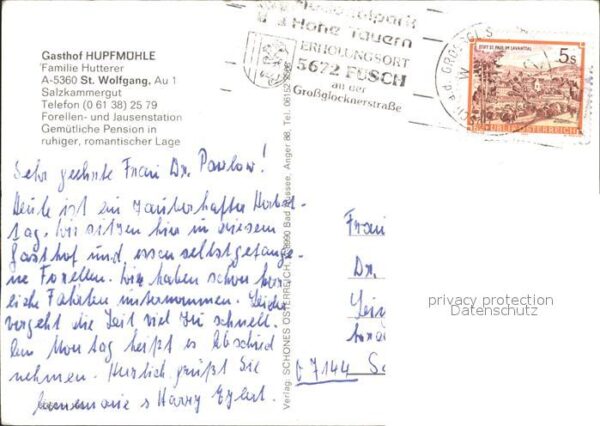 Gasthof HUPFMÜHLE
Familie Hutterer
A-5360 St. Wolfgang, Au 1
Salzkammergut
Telefon (0 61 38) 25 79
Forellen- und Jausenstation
Gemütliche Pension in
ruhiger, romantischer Lage
Nationalpark
Hohe Tauern
ERHOLUNGSORT
5672 FUSCH
an der
Großglocknerstraße
STIFT ST. PAUL IM LAVANTTAL
5s
REPUBLIK ÖSTERREICH
Sehr geehrte Frau Dr. Pavlow!
Heute ist ein zauberhafter Herbst-
tag. Wir sitzen hier in diesem
Gasthof und essen selbstgefange-
ne Forellen. Wir haben schon herr-
liche Fahrten unternommen. Leider
vergeht die Zeit viel zu schnell.
Am Montag heißt es Abschied
nehmen. Herzlich grüßt Sie
Annemarie & Harry
Verlag: SCHÖNES ÖSTERREICH,
8990 Bad Aussee, Anger 88, Tel. 06152
Frau
Dr.
O 7144
privacy protection
Datenschutz